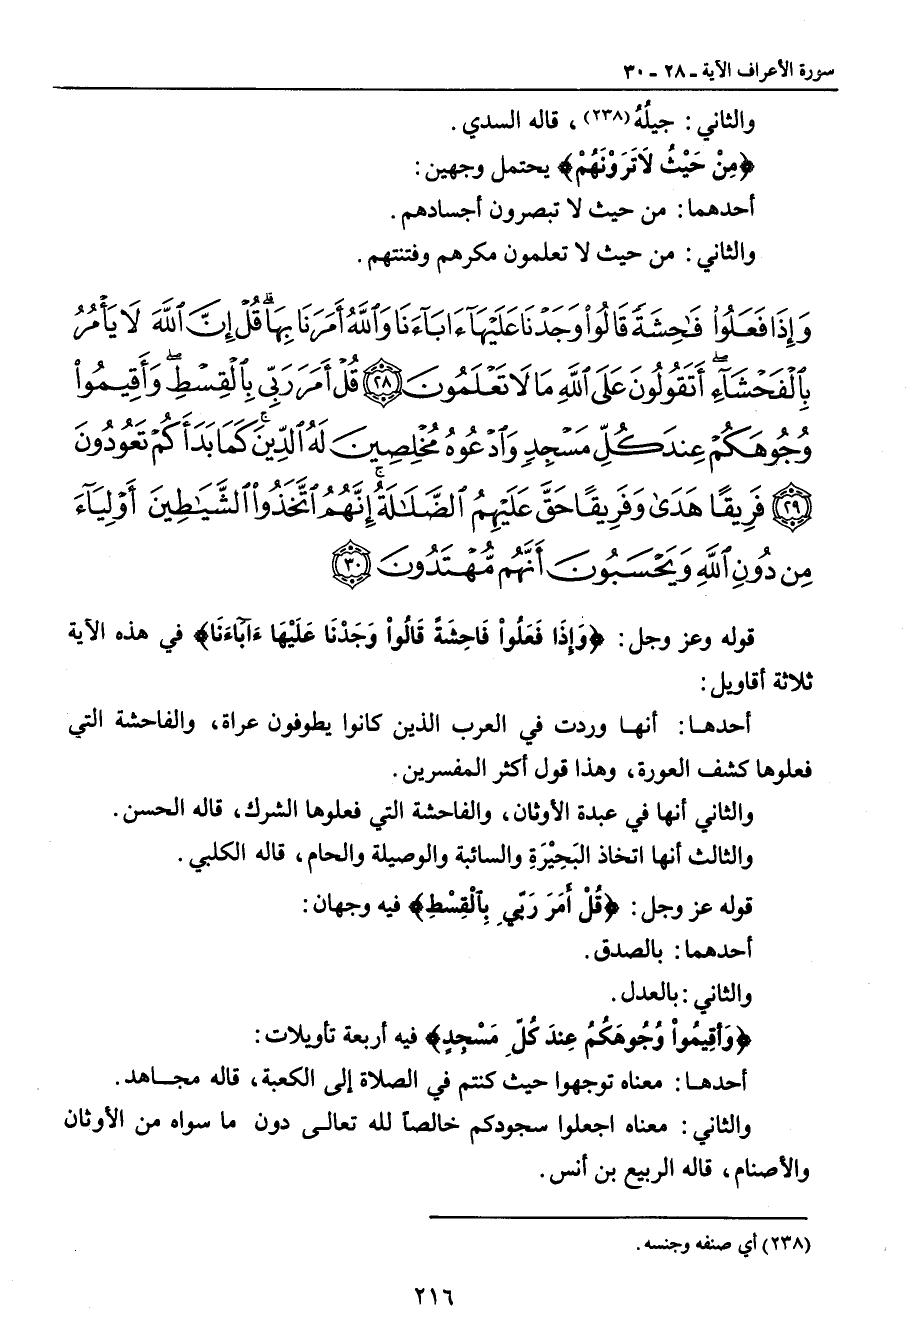 سورة الأعراف الآية ـ ٢٨ ـ ٣٠
والثاني : جيلُهُ(٢٣٨) ، قاله السدي .
﴿مِنْ حَيْثُ لَا تَرَوْنَهُمْ﴾ يحتمل وجهين :
أحدهما : من حيث لا تبصرون أجسادهم .
والثاني : من حيث لا تعلمون مكرهم وفتنتهم .
وَإِذَا فَعَلُوا۟ فَـٰحِشَةً قَالُوا۟ وَجَدْنَا عَلَيْهَآ ءَابَآءَنَا وَٱللَّهُ أَمَرَنَا بِهَا ۗ قُلْ إِنَّ ٱللَّهَ لَا يَأْمُرُ
بِٱلْفَحْشَآءِ ۖ أَتَقُولُونَ عَلَى ٱللَّهِ مَا لَا تَعْلَمُونَ ﴿٢٨﴾ قُلْ أَمَرَ رَبِّى بِٱلْقِسْطِ ۖ وَأَقِيمُوا۟
وُجُوهَكُمْ عِندَ كُلِّ مَسْجِدٍ وَٱدْعُوهُ مُخْلِصِينَ لَهُ ٱلدِّينَ ۚ كَمَا بَدَأَكُمْ تَعُودُونَ
﴿٢٩﴾ فَرِيقًا هَدَىٰ وَفَرِيقًا حَقَّ عَلَيْهِمُ ٱلضَّلَـٰلَةُ ۗ إِنَّهُمُ ٱتَّخَذُوا۟ ٱلشَّيَـٰطِينَ أَوْلِيَآءَ
مِن دُونِ ٱللَّهِ وَيَحْسَبُونَ أَنَّهُم مُّهْتَدُونَ ﴿٣٠﴾
قوله وعز وجل : ﴿وَإِذَا فَعَلُواْ فَاحِشَةً قَالُواْ وَجَدْنَا عَلَيْهَا ءَابَاءَنَا﴾ في هذه الآية
ثلاثة أقاويل :
أحدهـا : أنهـا وردت في العرب الذين كانوا يطوفون عراة ، والفاحشة التي
فعلوها كشف العورة ، وهذا قول أكثر المفسرين .
والثاني أنها في عبدة الأوثان ، والفاحشة التي فعلوها الشرك ، قاله الحسن .
والثالث أنها اتخاذ البَحِيْرَةِ والسائبة والوصيلة والحام ، قاله الكلبي .
قوله عز وجل : ﴿قُلْ أَمَرَ رَبِّي بِٱلْقِسْطِ﴾ فيه وجهان :
أحدهما : بالصدق .
والثاني : بالعدل .
﴿وَأَقِيمُواْ وُجُوهَكُمْ عِندَ كُلِّ مَسْجِدٍ﴾ فيه أربعة تأويلات :
أحدهـا : معناه توجهوا حيث كنتم في الصلاة إلى الكعبة ، قاله مجـاهد .
والثاني : معناه اجعلوا سجودكم خالصاً لله تعالـى دون ما سواه من الأوثان
والأصنام ، قاله الربيع بن أنس .
(٢٣٨) أي صنفه وجنسه .
٢١٦